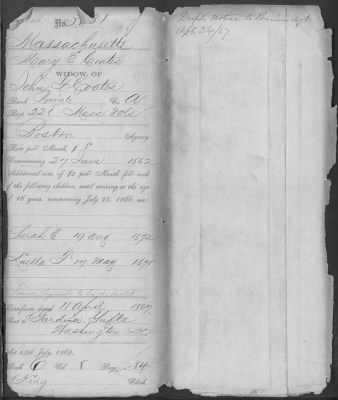 No. 
Massachusetts
Mary E. Coates
WIDOW OF
John F. Coates
Rank Private Co. A
Reg. 22d Mass Vols
Boston Agency
Rate per Month, $8
Commencing 27 June 1862
Additional sum of $2 per Month for each
of the following children, until arriving at the age
of 16 years, commencing July 25, 1866, viz:
Sarah E 19 Aug 1872
Luella F 17 May 1875
Certificate dated 11 April 1867
Sent to Gardiner Tufts
Washington DC
Act 14th July, 1862.
Book 6 Vol. 8 Page 84
King Clerk
Dupl. Notice to Pension Agt.
Apl 26/67